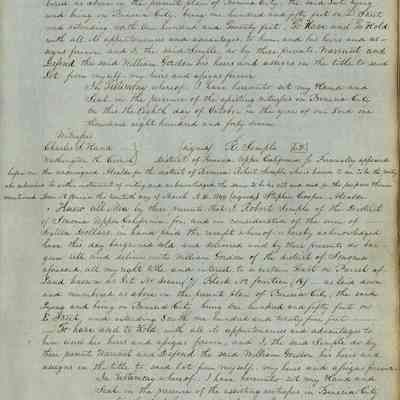 being as above in the present plan of Benicia City, the said Lot lying
and being in Benicia City being one hundred and fifty feet on D Street
and extending South one hundred and twenty feet, To Have and To Hold
with all its appurtenances and advantages to him and his heirs and as-
signs forever and I, the said Semple do by these presents Warrant and
Defend the said William Gordon his heirs and assigns in the title to said
Lot from myself my heirs and assigns forever
In Testimony whereof I have hereunto set my Hand and
Seal in the presence of the assisting witnesses in Benicia City
on this the Eighth day of October in the year of our Lord one
thousand eight hundred and forty seven
Witnesses
Charles S. Hand } (signed) R. Semple {L.S.}
Washington H. } District of Sonoma Upper California ss Personally appeared
before me the undersigned Alcalde for the district of Sonoma Robert Semple who is known to me to be the
who subscribed to the instrument of writing and acknowledged the same to be his act and deed for the purposes therein
mentioned Given at Benicia the twentieth day of March A.D. 1848 (signed) Stephen Cooper Alcalde
Know all Men by these presents that I Robert Semple of the District
of Sonoma Upper California for and in consideration of the sum of
Dollars in hand paid the receipt whereof is hereby acknowledged
have this day bargained sold and delivered and by these presents do bar-
gain sell and deliver unto William Gordon of the district of Sonoma
aforesaid, all my right title and interest to a certain Tract or Parcel of
Land known as Lot No. Block No. fourteen as laid down
and numbered as above in the present plan of Benicia City, the said
lying and being in Benicia City being one hundred and fifty feet on
E Street, and extending South one hundred and twenty five feet
To have and to Hold with all its appurtenances and advantages to
him and his heirs and assigns forever, and I, the said Semple do by
these presents Warrant and Defend the said William Gordon his heirs and
assigns in the title to said Lot from myself, my heirs and assigns forever
In Testimony whereof, I have hereunto set my Hand and
Seal in the presence of the assisting witnesses in Benicia City